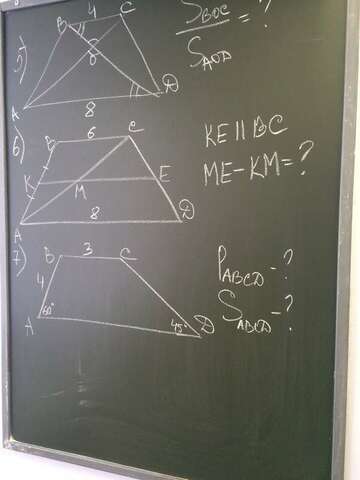 5)
B 4 C
O
A 8 D
S BOC / S AOD = ?
6)
B 6 C
K M E
A 8 D
KE || BC
ME - KM = ?
7)
B 3 C
4
A 60° 45° D
P ABCD - ?
S ABCD - ?